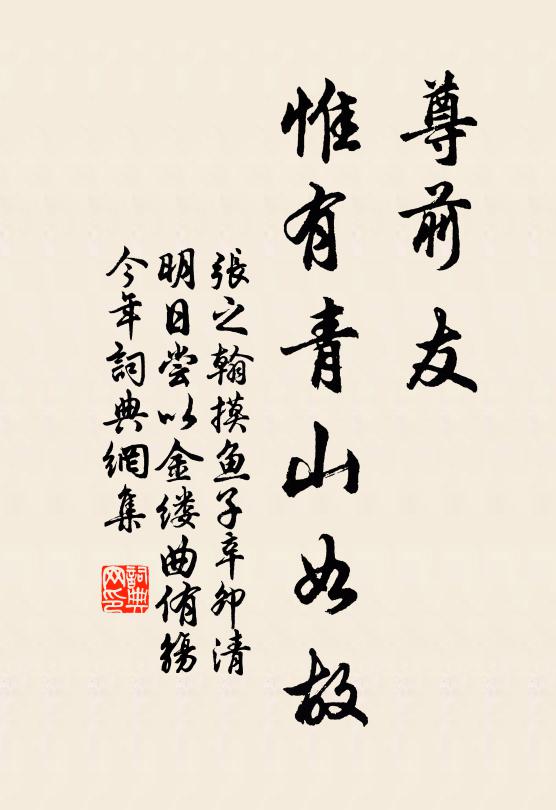 尊前友
惟有青山如故
張之翰摸鱼子辛卯清
明日尝以金缕曲侑觞
今年詞典網集
詞典网印